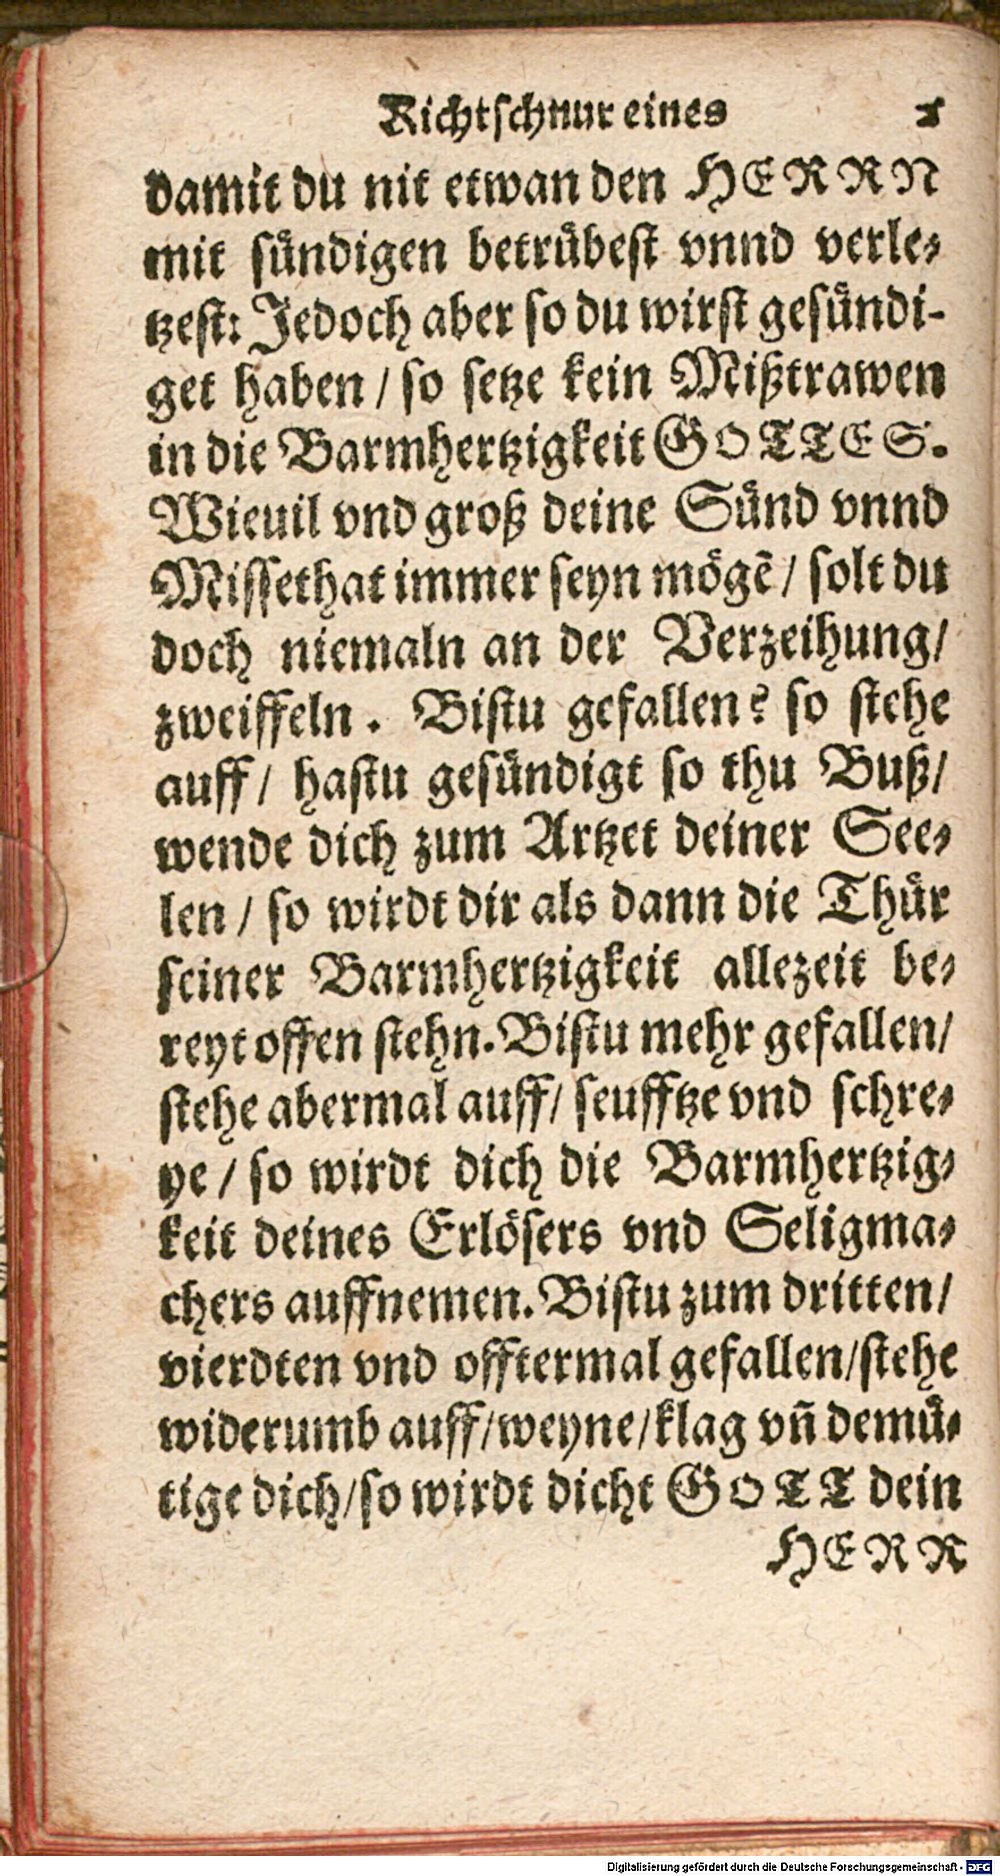 Richtschnur eines
damit du nit etwan den HERRN
mit sündigen betrübest vnnd verle-
tzest: Jedoch aber so du wirst gesündi-
get haben / so setze kein Mißtrawen
in die Barmhertzigkeit GOTTES.
Wieuil vnd groß deine Sünd vnnd
Missethat immer seyn mögẽ / solt du
doch niemaln an der Verzeihung/
zweiffeln. Bistu gefallen? so stehe
auff / hastu gesündigt so thu Buß/
wende dich zum Artzet deiner See-
len / so wirdt dir als dann die Thür
seiner Barmhertzigkeit allezeit be-
reyt offen stehn. Bistu mehr gefallen/
stehe abermal auff / seufftze vnd schre-
ye / so wirdt dich die Barmhertzig-
keit deines Erlösers vnd Seligma-
chers auffnemen. Bistu zum dritten/
vierdten vnd offtermal gefallen/stehe
widerumb auff/weyne/klag vñ demü-
tige dich/so wirdt dicht GOTT dein
HERR
Digitalisierung gefördert durch die Deutsche Forschungsgemeinschaft - DFG